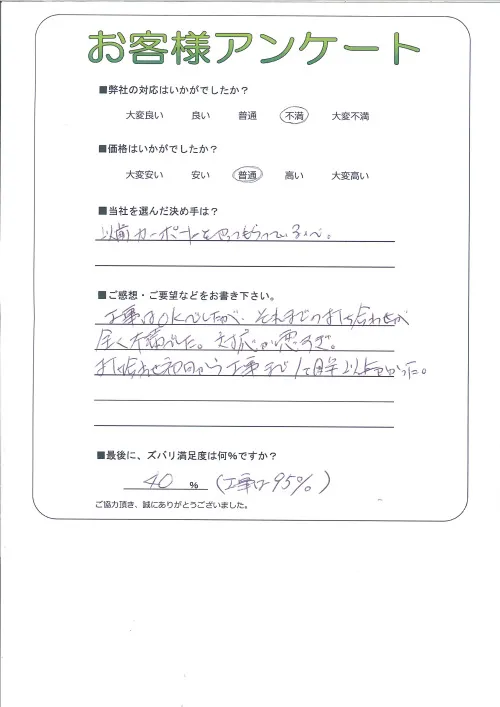 お客様アンケート
■弊社の対応はいかがでしたか？
大変良い 良い 普通 不満 大変不満
■価格はいかがでしたか？
大変安い 安い 普通 高い 大変高い
■当社を選んだ決め手は？
以前カーポートをやってもらっている
■ご感想・ご要望などをお書き下さい。
工事はOKでしたが、それまでの打ち合わせが
全く不満でした。対応が悪すぎ。
打ち合わせ初回から工事まで1ヶ月半以上かかった。
■最後に、ズバリ満足度は何％ですか？
40 % (工事は95%)
ご協力頂き、誠にありがとうございました。